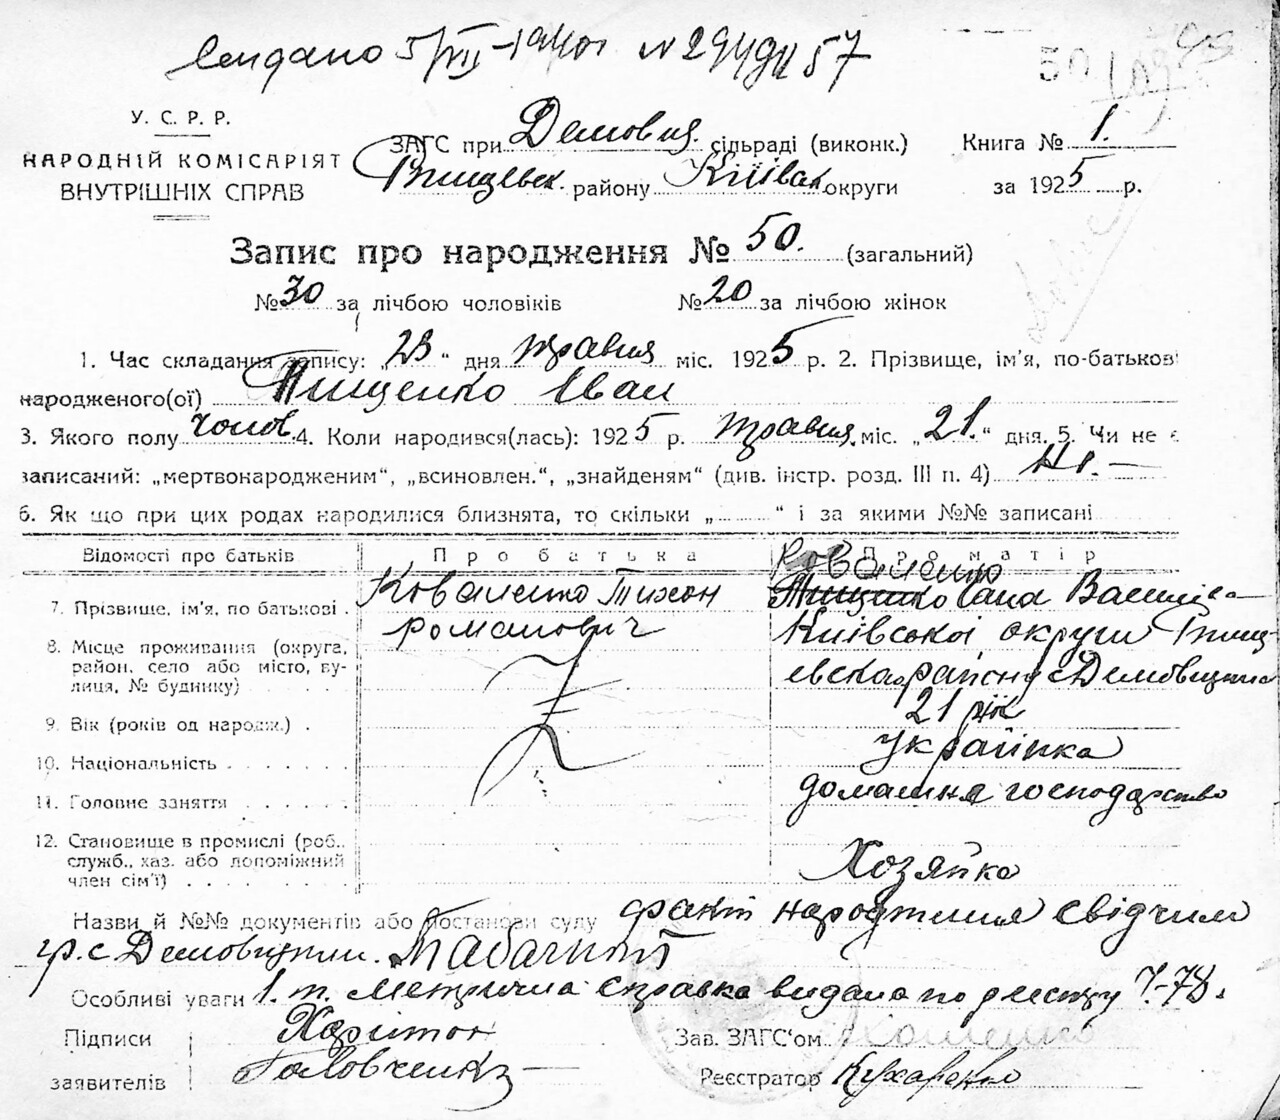 видано 5/VII-1940 N 294 57
50
У. С. Р. Р.
НАРОДНІЙ КОМІСАРІЯТ
ВНУТРІШНІХ СПРАВ
ЗАГС при Демовщ. сільраді (виконк.) Книга № 1.
району Київськ округи за 1925 р.
Запис про народження № 50. (загальний)
№ 30 за лічбою чоловіків № 20 за лічбою жінок
1. Час складання запису: „23“ дня травня міс. 1925 р. 2. Прізвище, ім'я, по-батькові
народженого(ої) Тищенко Іван
3. Якого полу чолов. 4. Коли народився(лась): 1925 р. травня. міс. „21.“ дня. 5. Чи не є
записаний: „мертвонародженим“, „всиновлен.“, „знайденям“ (див. інстр. розд. III п. 4) Ні. —
6. Як що при цих родах народилися близнята, то скільки „ “ і за якими №№ записані
Відомості про батьків Про батька Про матір
Коваленко
7. Прізвище, ім'я, по батькові . Коваленко Тихон Романович Тищенко Ганна Василівна
8. Місце проживання (округа, район, село або місто, вулиця, № будинку) Київської округи района с Демовщина
9. Вік (років од народж.) . 21 рік
10. Національність . . . . . українка
11. Головне заняття . . . . . домашня господарство
12. Становище в промислі (роб., служб., хаз. або допоміжний член сім'ї) . . . . . Хозяйка
Назви й №№ документів або постанови суду факт народження свідчили
гр. с Демовщини. Табачний
Особливі уваги 1. т. Метрична справка видана по реєстру Ч-78.
Підписи Харітон Зав. ЗАГС'ом
заявителів Головченко Реєстратор Кухаренко